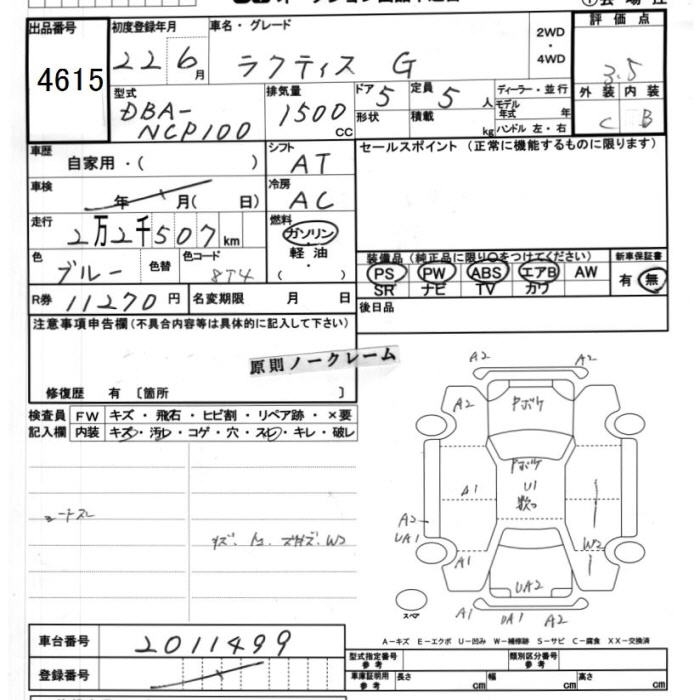 出品番号 初度登録年月 車名・グレード 2WD・4WD 評価点
4615 22 6月 ラクティス G 3.5
型式 排気量 ドア 5 定員 5人 ディーラー・並行 外装 内装
DBA-NCP100 1500cc 形状 積載 kg モデル年式 年 C B
ハンドル 左・右
車歴 シフト セールスポイント (正常に機能するものに限ります)
自家用・( ) AT
車検 冷房
年 月( 日) AC
走行 燃料
2万2千507km ガソリン
色 色替 色コード 軽油 装備品 (純正品に限り○をつけてください) 新車保証書
ブルー 8T4 ・( ) PS PW ABS エアB AW 有 無
SR ナビ TV カワ
R券 11270円 名変期限 月 日 後日品
注意事項申告欄 (不具合内容等は具体的に記入して下さい)
原則ノークレーム
修復歴 有 〔箇所 〕
検査員 FW キズ・飛石・ヒビ割・リペア跡・×要
記入欄 内装 キズ・汚レ・コゲ・穴・スレ・キレ・破レ
A2 A2
A2 Pボケ A2
Pボケ
A1 U1
A2
UA1 W2
A1 UA2 A1
A1 UA1 A2
スペア
A-キズ E-エクボ U-凹み W-補修跡 S-サビ C-腐食 XX-交換済
車台番号 2011499
型式指定番号 参考 類別区分番号 参考
登録番号 車庫証明用 参考 長さ cm 幅 cm 高さ cm